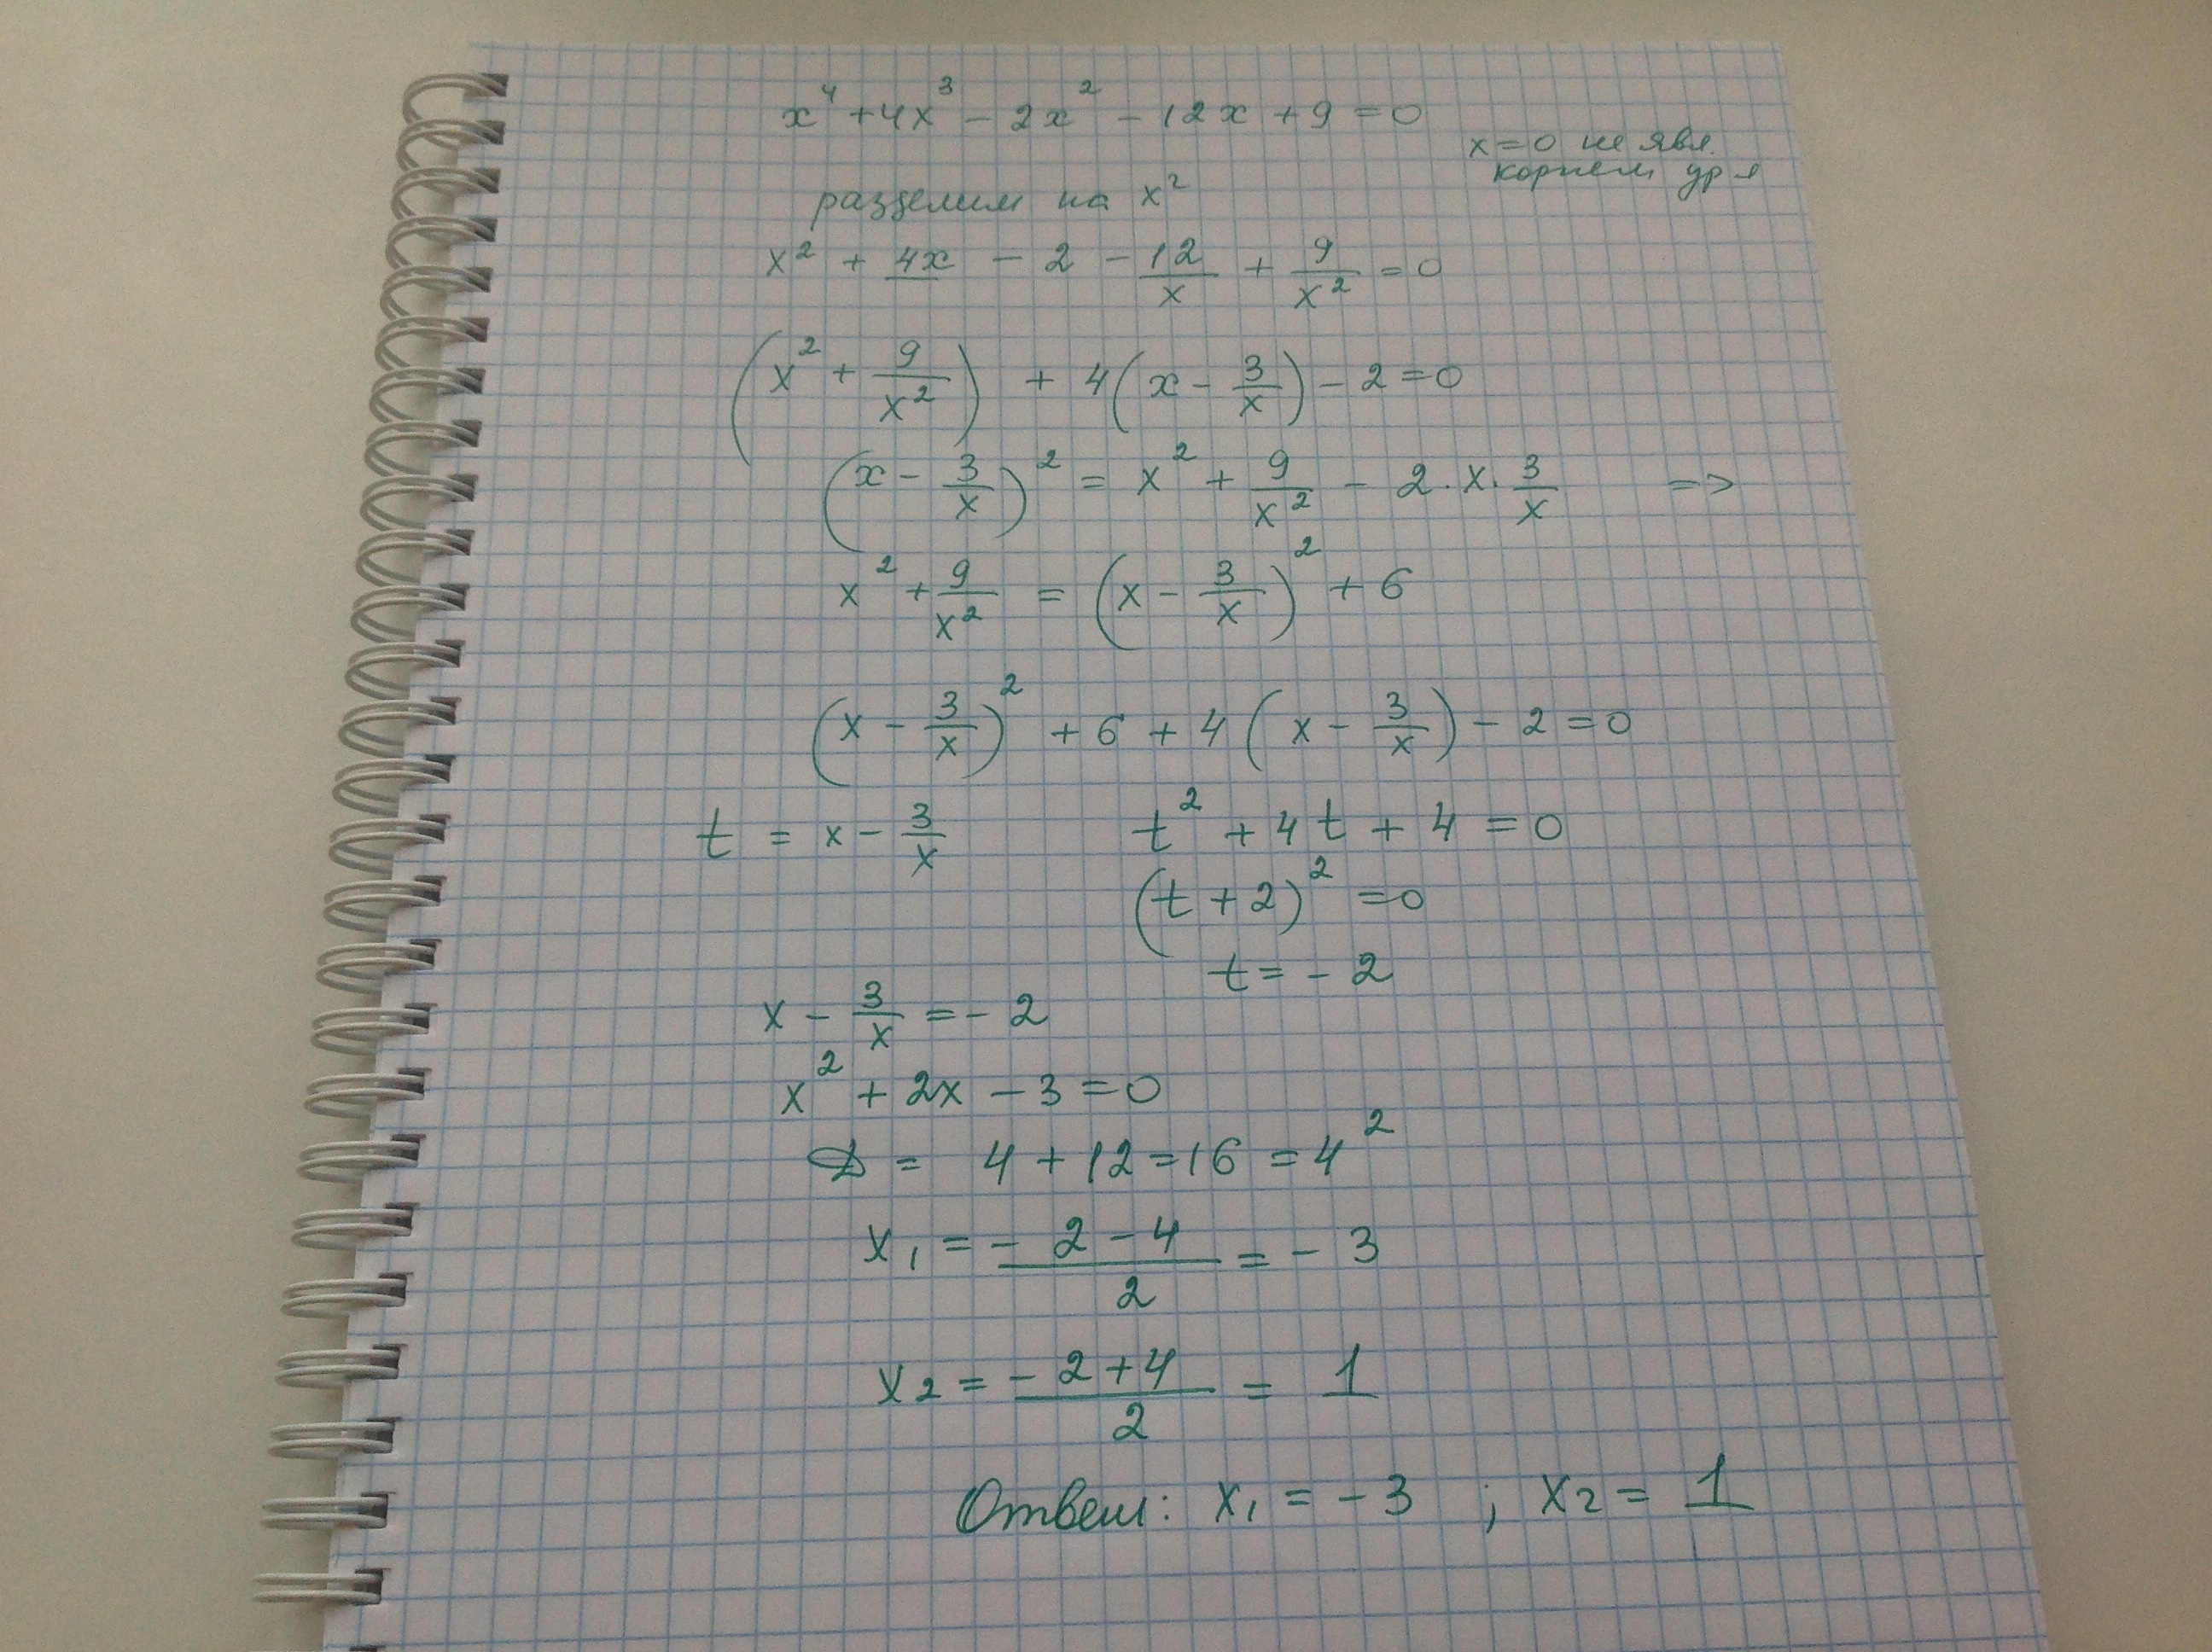 x⁴ + 4x³ - 2x² - 12x + 9 = 0
x = 0 не явл.
корнем ур-я
разделим на x²
x² + 4x - 2 - 12/x + 9/x² = 0
(x² + 9/x²) + 4(x - 3/x) - 2 = 0
(x - 3/x)² = x² + 9/x² - 2 · x · 3/x =>
x² + 9/x² = (x - 3/x)² + 6
(x - 3/x)² + 6 + 4(x - 3/x) - 2 = 0
t = x - 3/x t² + 4t + 4 = 0
(t + 2)² = 0
t = - 2
x - 3/x = - 2
x² + 2x - 3 = 0
D = 4 + 12 = 16 = 4²
x₁ = (- 2 - 4)/2 = - 3
x₂ = (- 2 + 4)/2 = 1
Ответ: x₁ = - 3 ; x₂ = 1